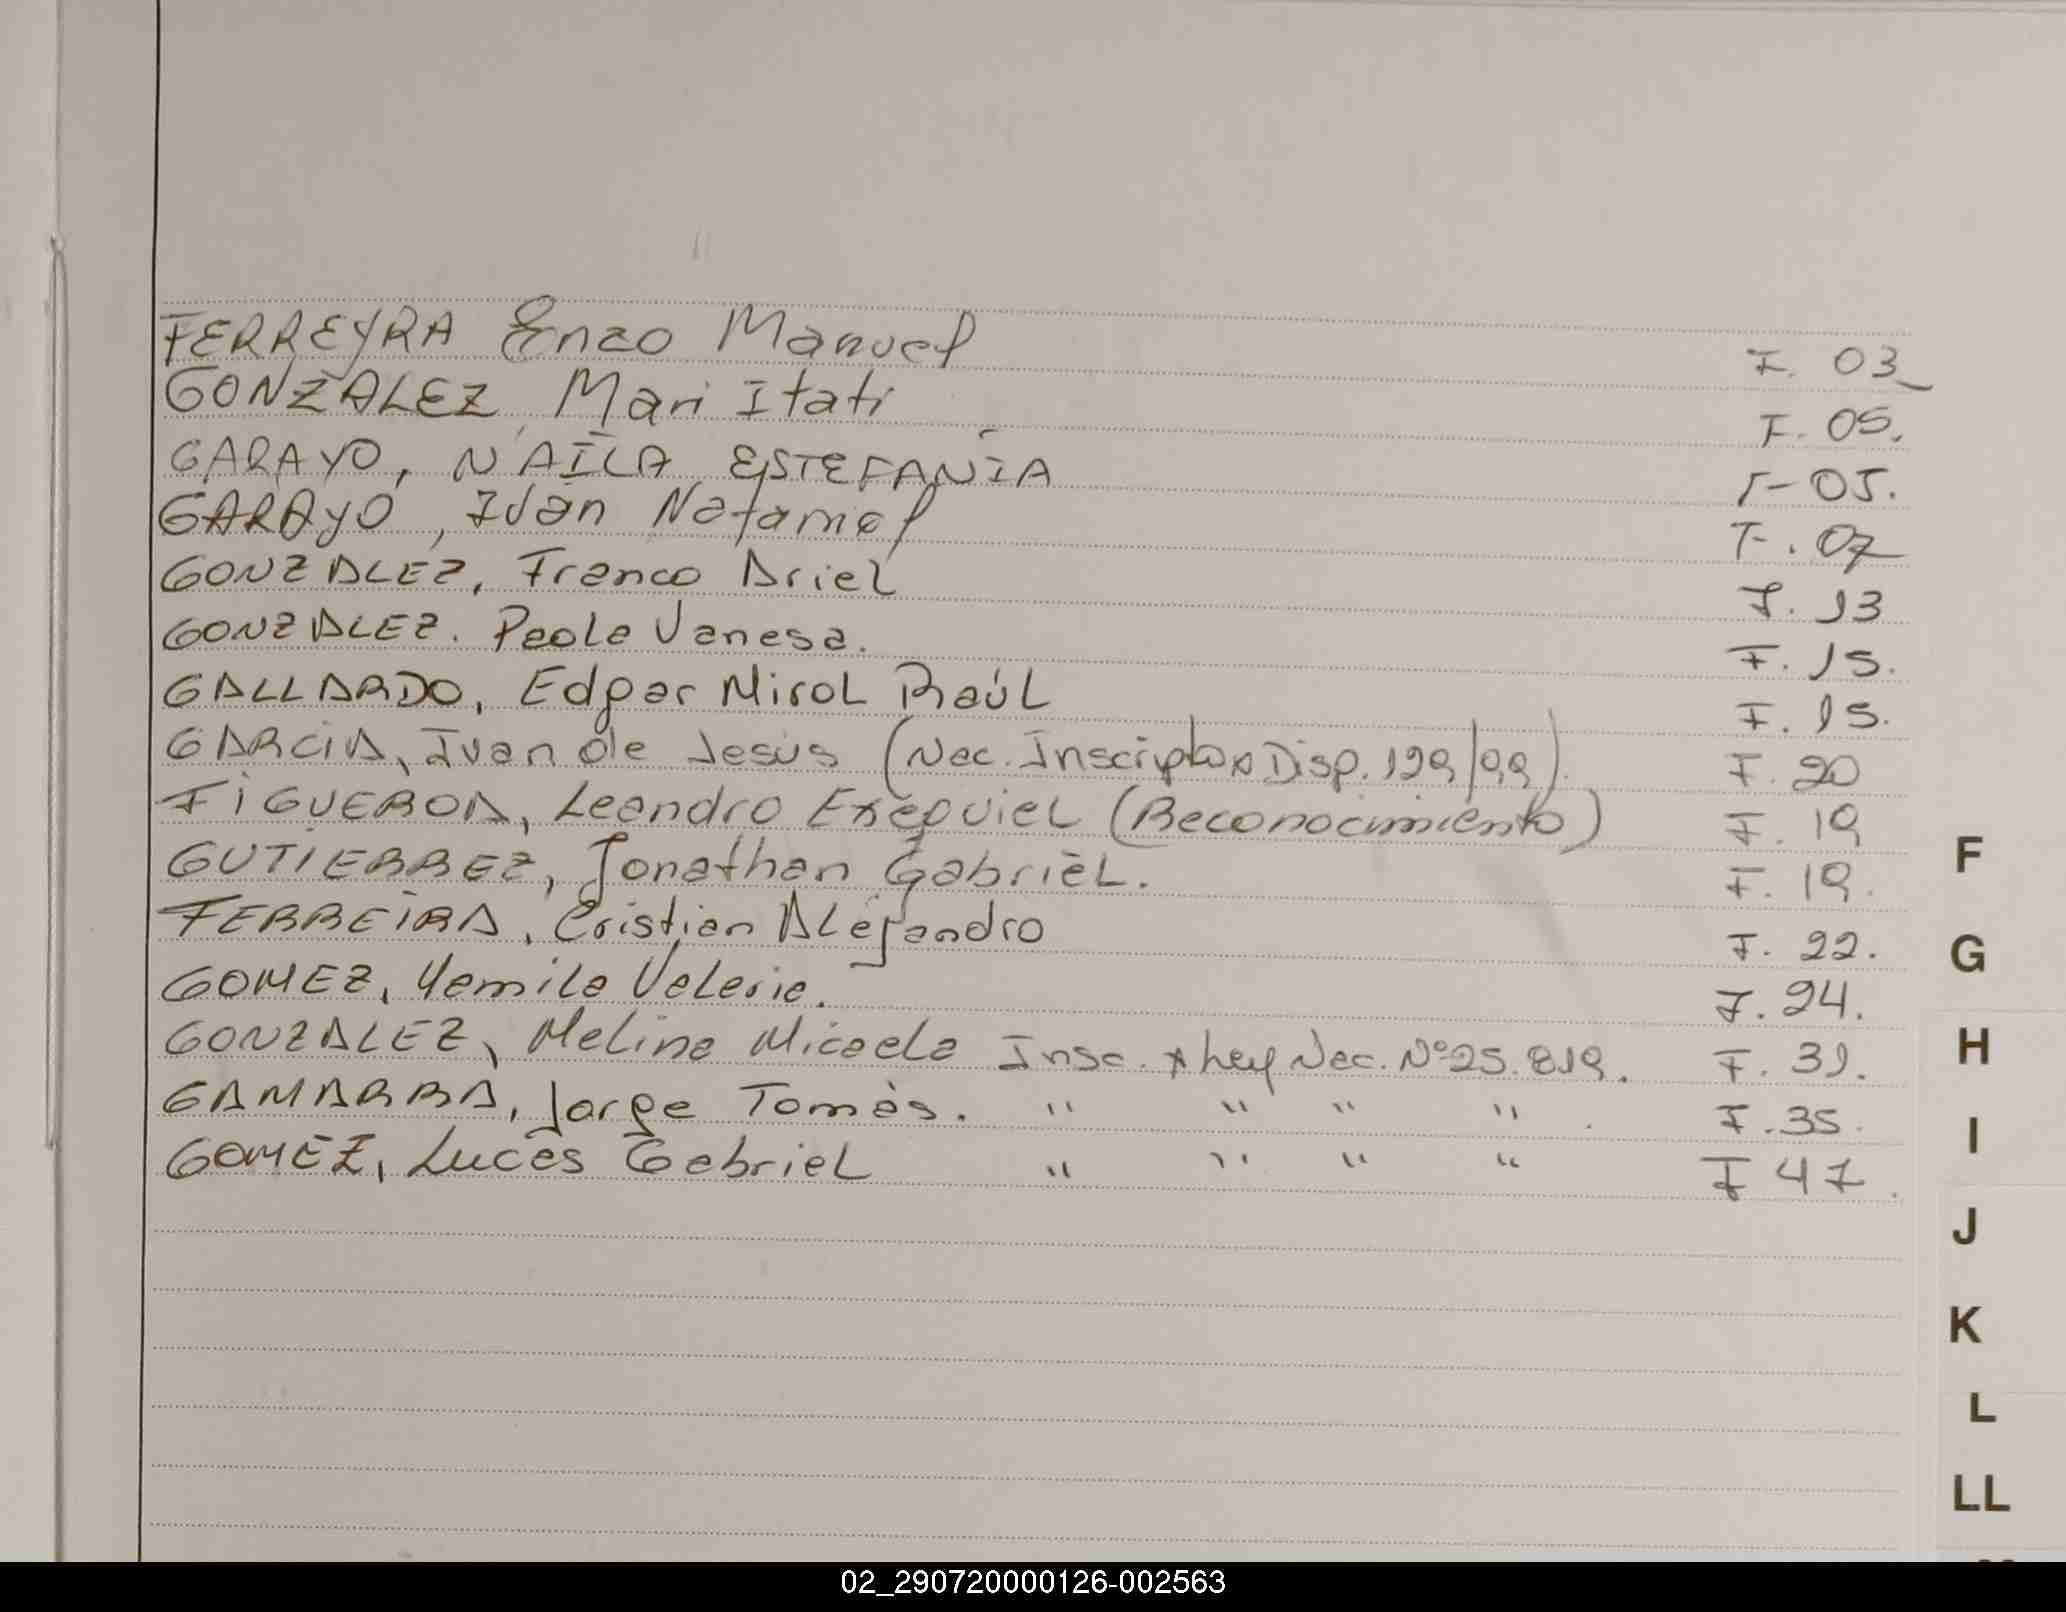 FERREYRA Enzo Manuel F. 03
GONZALEZ Mari Itati F. 05.
GARAYO, NAILA ESTEFANÍA F-05.
GARAYO, Iván Natamel F. 07
GONZALEZ, Franco Ariel F. 13
GONZALEZ. Paola Vanesa. F. 15.
GALLARDO, Edgar Mirol Raúl F. 15.
GARCIA, Ivan de Jesús (Nac. Inscripto x Disp. 129/99). F. 20
FIGUEROA, Leandro Exequiel (Reconocimiento) F. 19
GUTIERREZ, Jonathan Gabriel. F. 19.
FERREIRA, Cristian Alejandro F. 22.
GOMEZ, Yamila Valeria. F. 24.
GONZALEZ, Melina Micaela Insc. x Ley Nac. Nº 25.819. F. 31.
GAMARRA, Jorge Tomás. " " " " . F. 35.
GOMEZ, Lucas Gabriel " " " " F 47.
F
G
H
I
J
K
L
LL
02_290720000126-002563